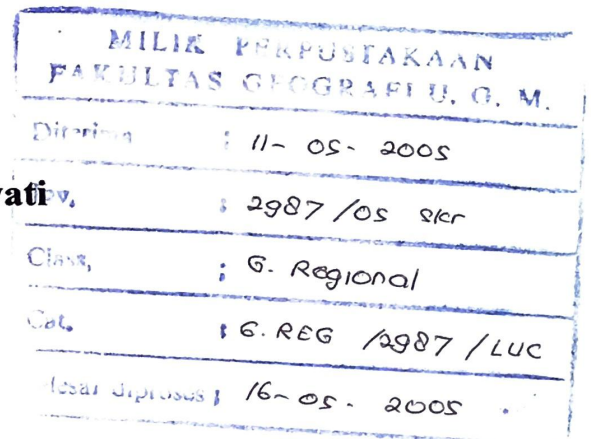 MILIK PERPUSTAKAAN
FAKULTAS GEOGRAFI U. G. M.
Diterima : 11- 05- 2005
vati
Inv, : 2987/05 skr
Class, : G. Regional
Cat. : G. REG /2987 / LUC
diproses : 16- 05 - 2005